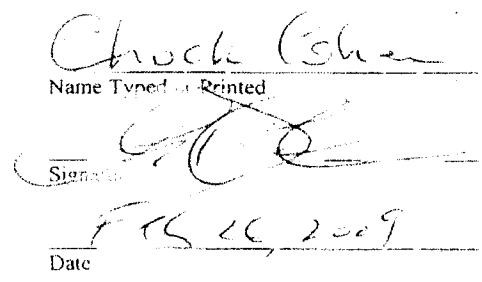 Chuck Cohen
Name Typed or Printed
Signature
Feb 26, 2009
Date